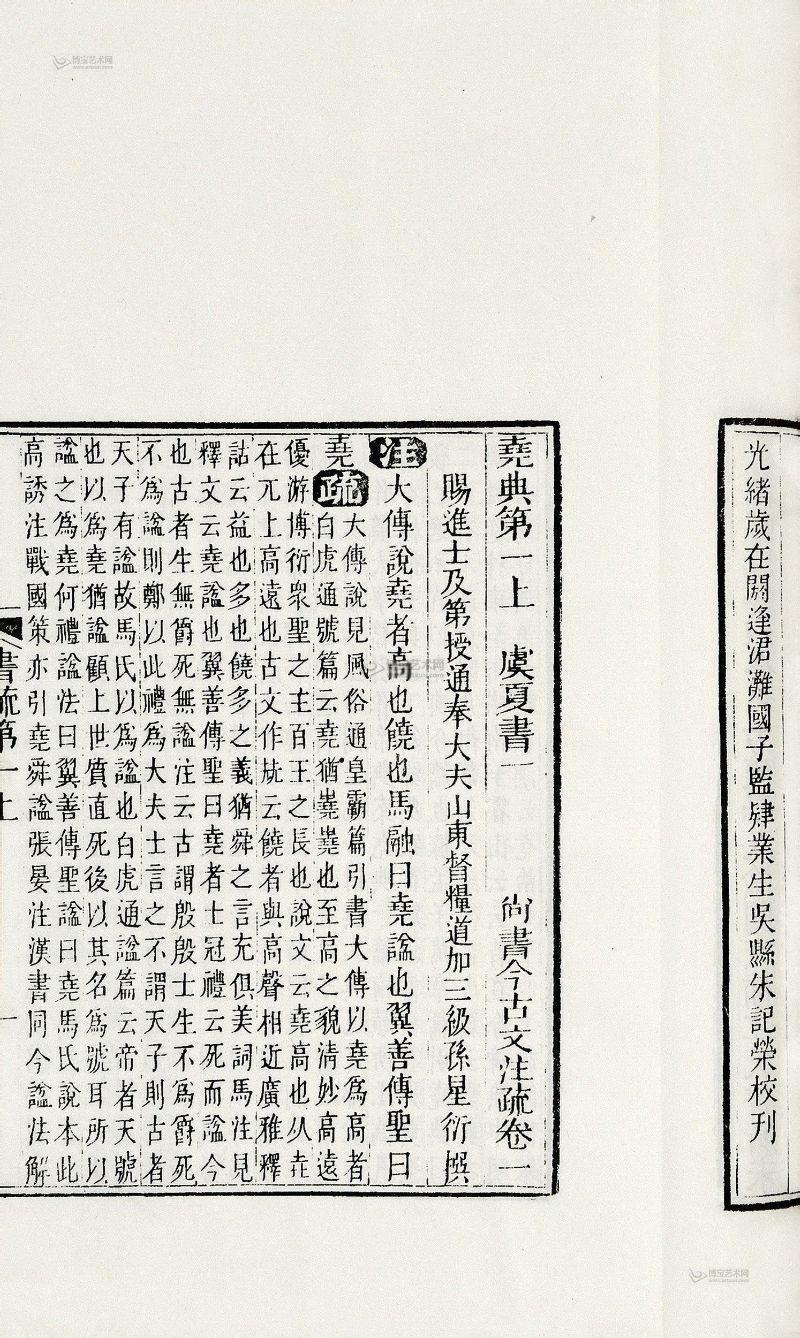 光緒歲在閼逢涒灘國子監肄業生吳縣朱記榮校刊
堯典第一上 虞夏書一 尚書今古文注疏卷一
賜進士及第授通奉大夫山東督糧道加三級孫星衍撰
注大傳說堯者高也饒也馬融曰堯諡也翼善傳聖曰
堯疏大傳說見風俗通皇霸篇引書大傳以堯為高者
白虎通號篇云堯猶嶤嶤也至高之貌清妙高遠
優游博衍眾聖之主百王之長也說文云堯高也从垚
在兀上高遠也古文作㚁云饒者與高聲相近廣雅釋
詁云益也多也饒多之義猶舜之言充俱美詞馬注見
釋文云堯諡也翼善傳聖曰堯者士冠禮云死而諡今
也古者生無爵死無諡注云古謂殷殷士生不為爵死
不為諡則鄭以此禮為大夫士言之不謂天子則古者
天子有諡故馬氏以為諡也白虎通諡篇云帝者天號
也以為堯猶諡顧上世質直死後以其名為號耳所以
諡之為堯何禮諡法曰翼善傳聖諡曰堯馬氏說本此
高誘注戰國策亦引堯舜諡張晏注漢書同今諡法解
書疏第一上 一
博宝艺术网
博宝艺术网